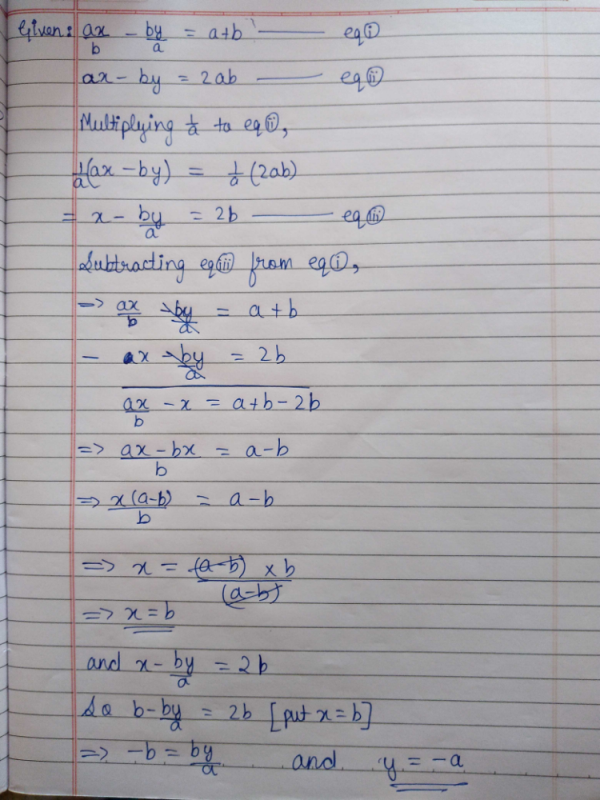 Given: ax/b - by/a = a+b —— eq(i)
ax - by = 2ab —— eq(ii)
Multiplying 1/a to eq(ii),
1/a(ax - by) = 1/a (2ab)
= x - by/a = 2b —— eq(iii)
Subtracting eq(iii) from eq(i),
=> ax/b - by/a = a + b
- x - by/a = 2b
ax/b - x = a+b-2b
=> ax - bx/b = a-b
=> x(a-b)/b = a-b
=> x = (a-b) × b/(a-b)
=> x = b
and x - by/a = 2b
So b - by/a = 2b [put x = b]
=> -b = by/a and y = -a